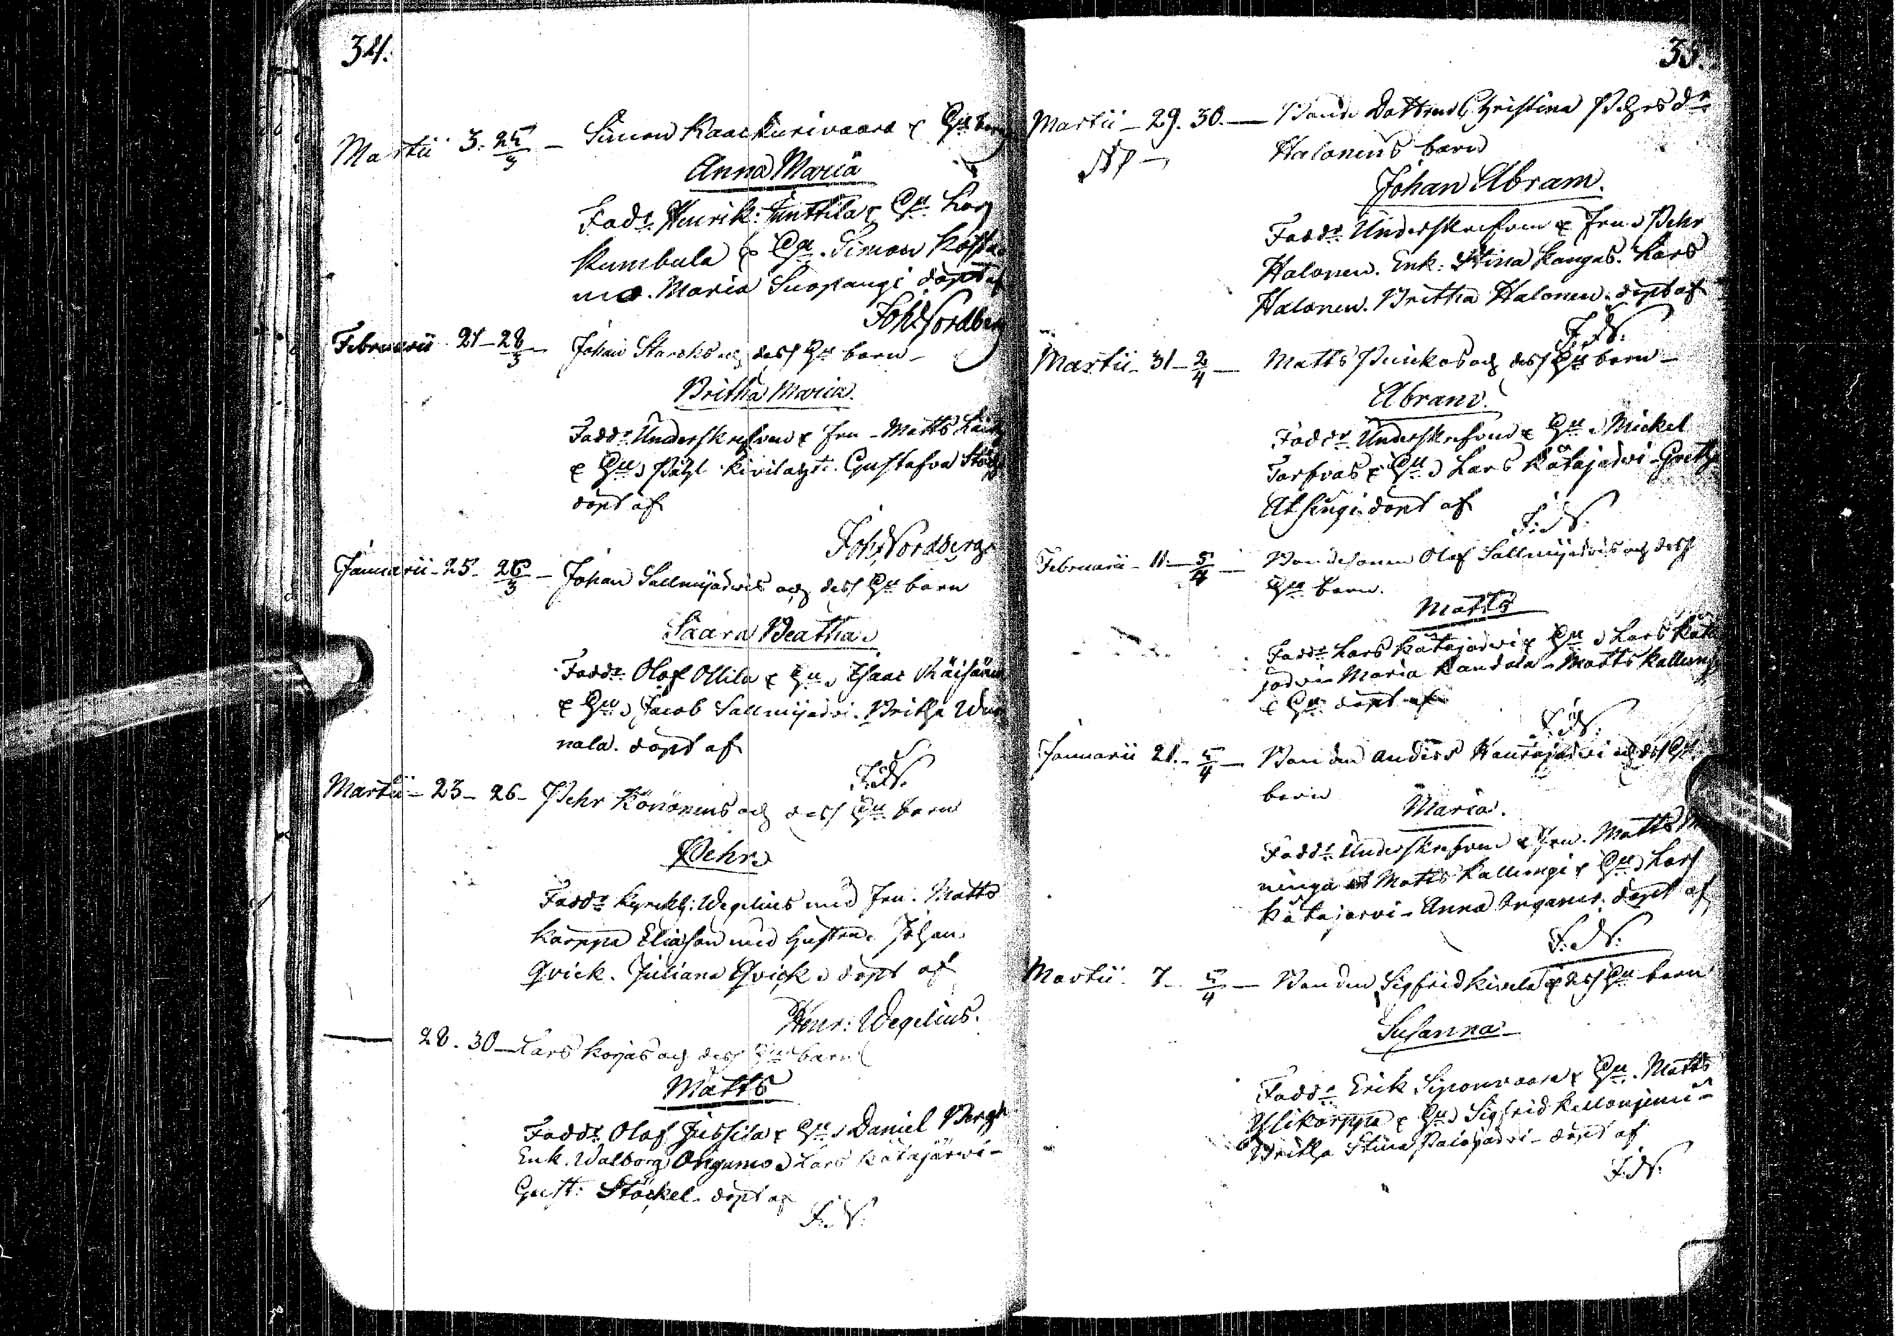 34.
Martii 3. 25/3 — Simon Kaackurivaara & Hu barn
Anna Maria
Fadd: Henrik Junttila & Hu. Lars
Kumbula & Hu. Simon
Maria Suopangi döpt af
Joh: Nordberg
Februarii 21 — 28/3 — Johan Starcks och dess Hu barn —
Britha Maria.
Fadd: Underskrefven & fru — Matts
& Hu Påhl Kivilachti. Gustafva
döpt af
Joh: Nordberg
Januarii — 25 — 26/3 — Johan Sallmijärvis och dess Hu barn
Saara Beatha
Fadd: Olof Ollila & Hu Isaac Räisänen
& Hu Jacob Sallmijärvi. Britha
nala. döpt af
J: N:
Martii — 23 — 26 — Pehr Könönens och dess Hu barn
Pehr
Fadd: Kyrckh: Wegelius med fru. Matts
Karppa Eliasson med hustru. Johan
Qvick. Juliana Qvick döpt af
Henr: Wegelius.
28. 30 — Lars Korjas och dess Hu barn
Matts
Fadd: Olof Jussila & Hu Daniel Bergh
Enk. Walborg Angamo Lars Katajärwi —
Gust: Stöckel. döpt af
J: N:
35.
Martii — 29. 30. — Bonde Dottren Christina Pehrs dr
Halonens barn
Johan Abram.
Fadd: Underskrefven & fru Pehr
Halonen. Enk: Stina Kangas. Lars
Halonen. Britha Halonen. döpt af
J: N:
Martii — 31 — 2/4 — Matts och dess Hu barn —
Abram.
Fadd: Underskrefven & Hu Mickel
Torfvas & Hu Lars Katajärvi — Greta
döpt af
J: N:
Februarii — 11 — 5/4 — Bondesonen Olof Sallmijärvis och dess
Hu barn.
Matts
Fadd: Lars Katajärvi & Hu Lars Kata
järvi Maria Kandala — Matts Kallungi
& Hu döpt af
J: N:
Januarii 21. — 5/4 — Bonden Anders Hautajärvi och dess Hu
barn
Maria.
Fadd: Underskrefven & fru. Matts
ninga Matts Kallungi & Hu Lars
Katajärvi — Anna Angamo. döpt af
J: N:
Martii 7 — 5/4 — Bonden Sigfrid Kivela & dess Hu barn
Susanna —
Fadd: Erik Siponvaara & Hu. Matts
Ylikärppä & Hu Sigfrid Kellonjemi —
Britha Stina Paiojärvi — döpt af
J: N: